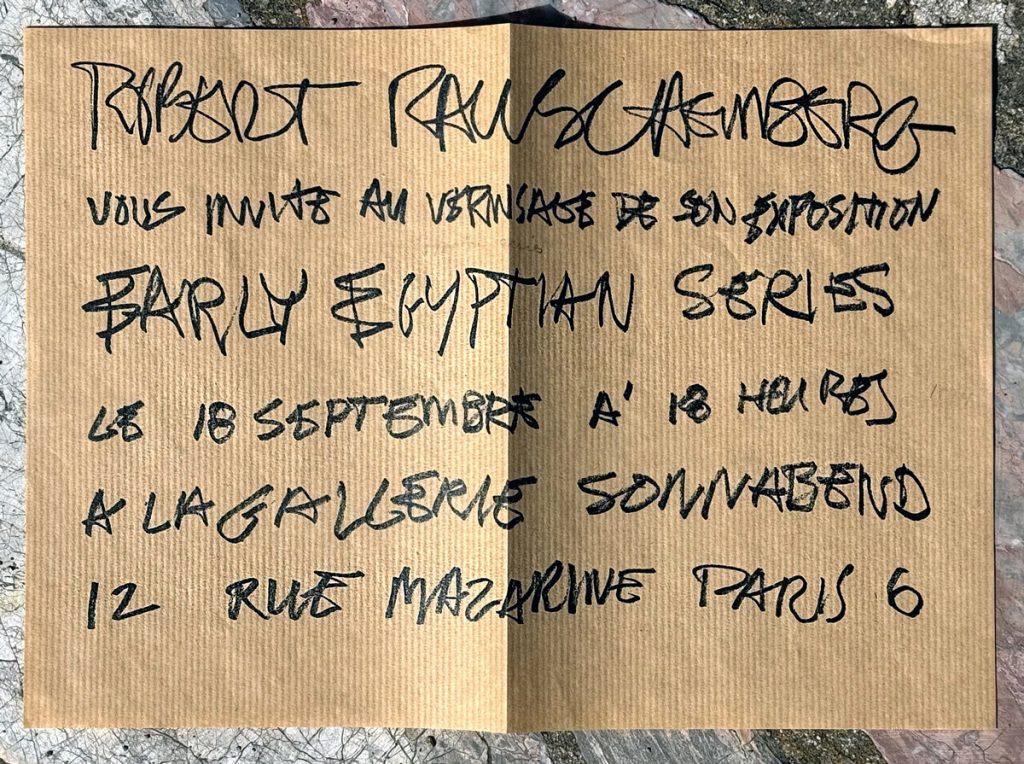 ROBERT RAUSCHEMBERG
VOUS INVITE AU VERNISAGE DE SON EXPOSITION
EARLY EGYPTIAN SERIES
LE 18 SEPTEMBRE A' 18 HEURES
A LA GALLERIE SONNABEND
12 RUE MAZARINE PARIS 6